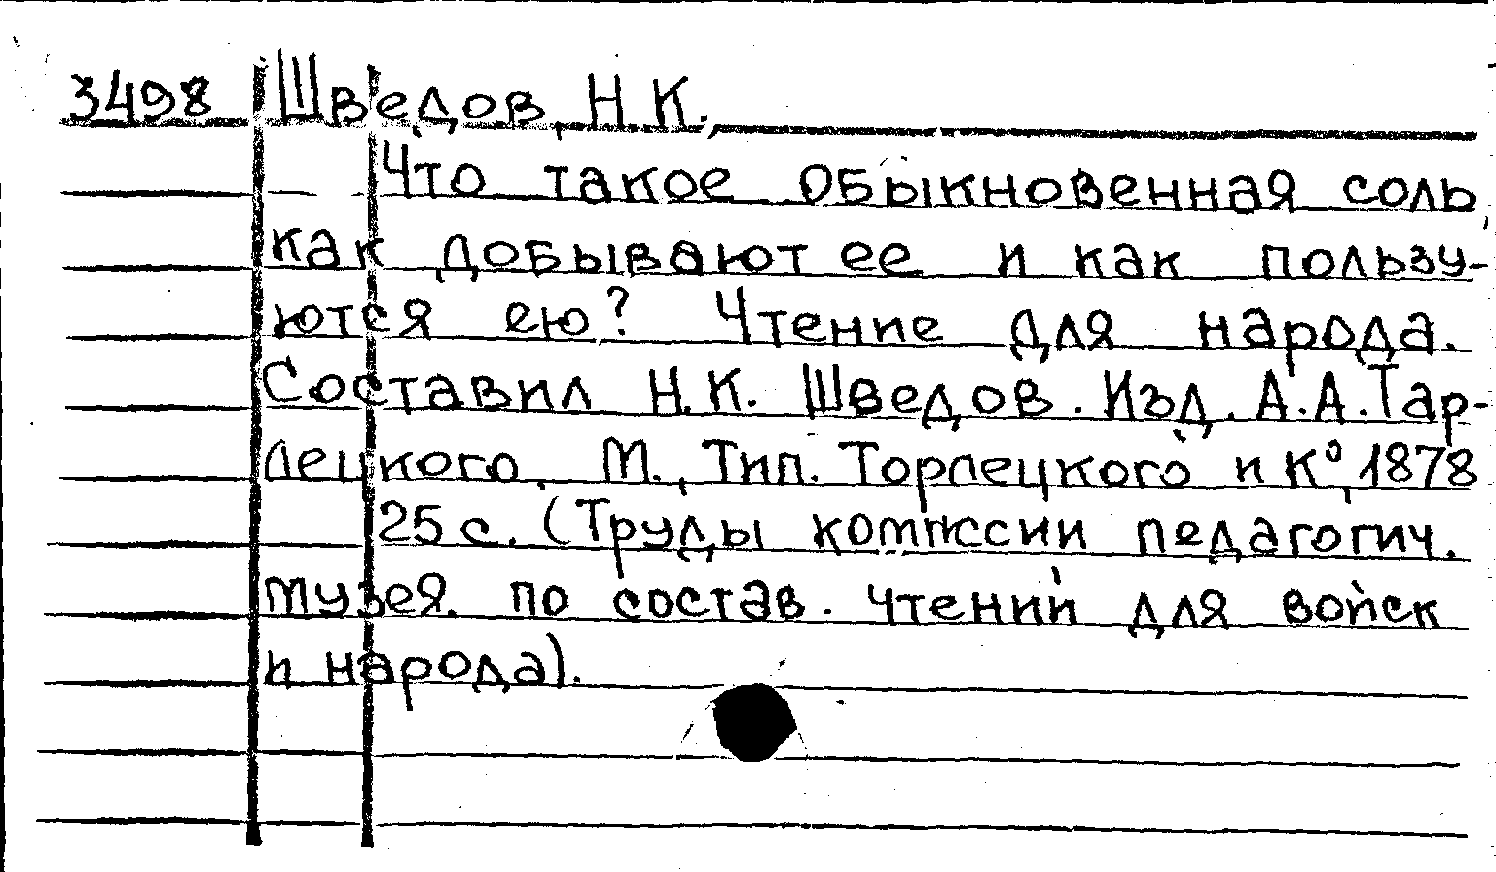 3498 Шведов, Н.К.,
Что такое обыкновенная соль,
как добывают ее и как пользу-
ются ею? Чтение для народа.
Составил Н.К. Шведов. Изд. А.А.Тар-
лецкого. М., Тип. Торлецкого и К°, 1878
25 с. (Труды комиссии педагогич.
музея. по состав. чтений для войск
и народа).